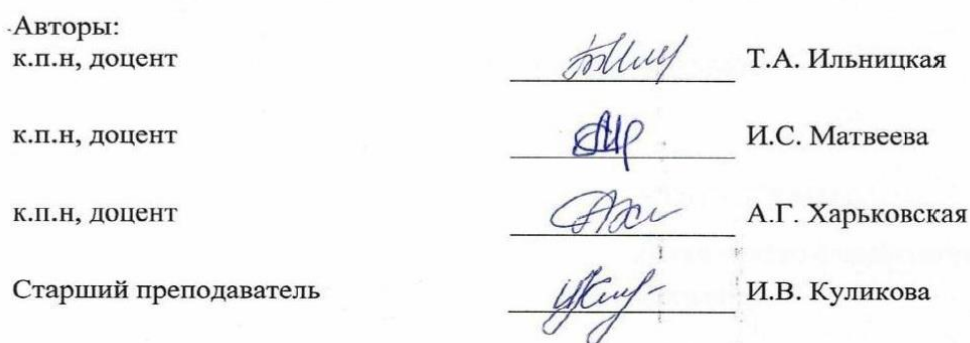 Авторы:
к.п.н, доцент Т.А. Ильницкая
к.п.н, доцент И.С. Матвеева
к.п.н, доцент А.Г. Харьковская
Старший преподаватель И.В. Куликова